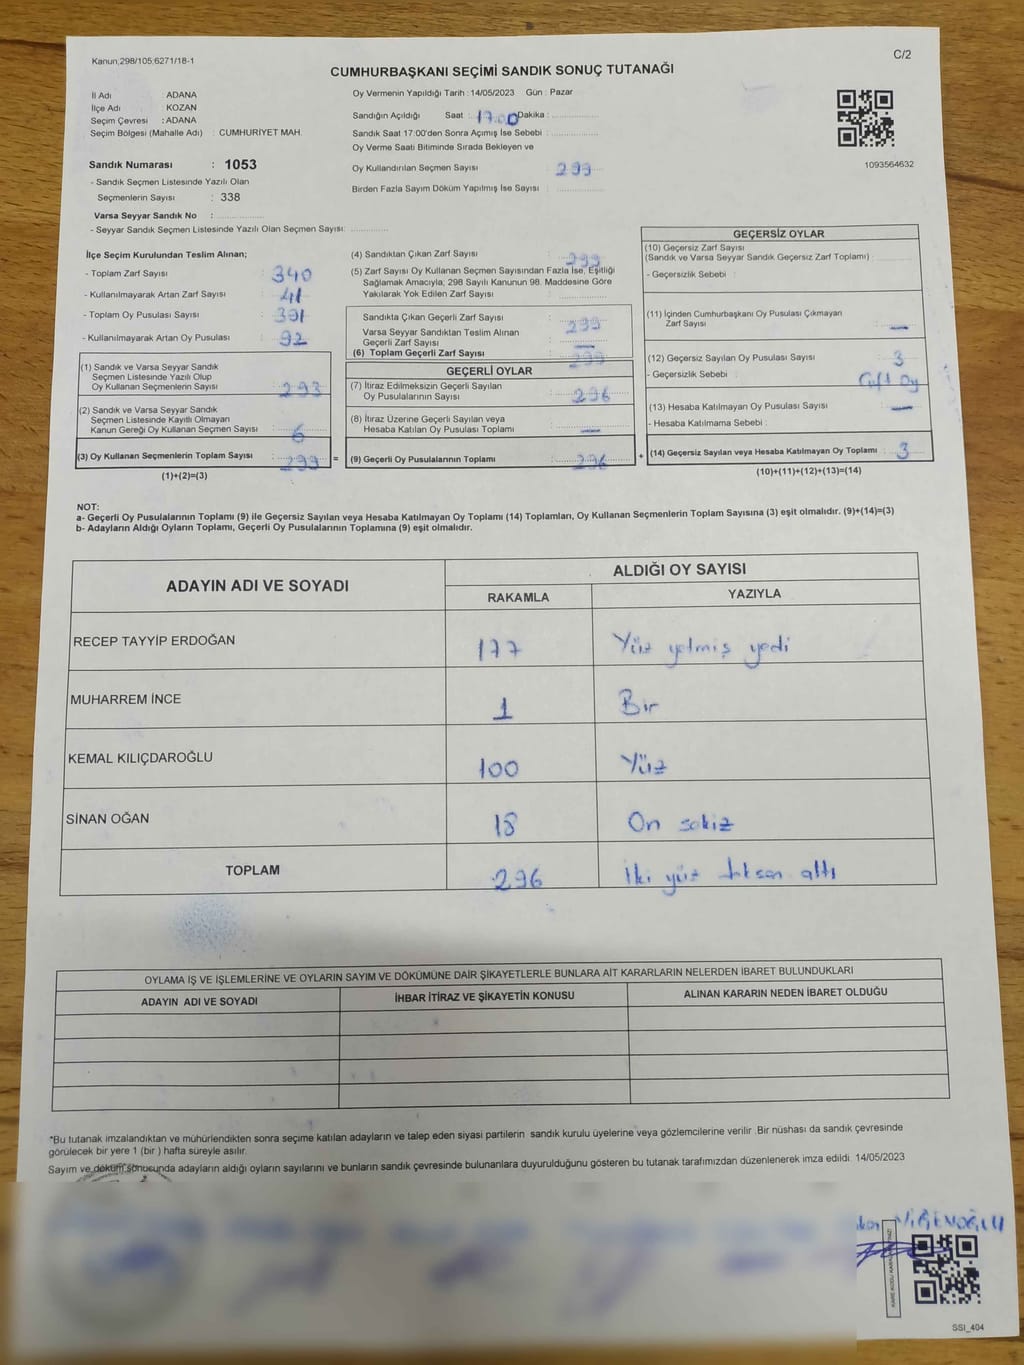 Kanun,298/105;6271/18-1
C/2
CUMHURBAŞKANI SEÇİMİ SANDIK SONUÇ TUTANAĞI
İl Adı : ADANA
İlçe Adı : KOZAN
Seçim Çevresi : ADANA
Seçim Bölgesi (Mahalle Adı) : CUMHURİYET MAH.
Sandık Numarası : 1053
- Sandık Seçmen Listesinde Yazılı Olan
Seçmenlerin Sayısı : 338
Varsa Seyyar Sandık No :
- Seyyar Sandık Seçmen Listesinde Yazılı Olan Seçmen Sayısı:
Oy Vermenin Yapıldığı Tarih : 14/05/2023 Gün : Pazar
Sandığın Açıldığı Saat : 17.00 Dakika :
Sandık Saat 17:00'den Sonra Açımış İse Sebebi :
Oy Verme Saati Bitiminde Sırada Bekleyen ve
Oy Kullandırılan Seçmen Sayısı : 299
Birden Fazla Sayım Döküm Yapılmış İse Sayısı :
1093564632
İlçe Seçim Kurulundan Teslim Alınan;
- Toplam Zarf Sayısı : 340
- Kullanılmayarak Artan Zarf Sayısı : 41
- Toplam Oy Pusulası Sayısı : 391
- Kullanılmayarak Artan Oy Pusulası : 92
(1) Sandık ve Varsa Seyyar Sandık
Seçmen Listesinde Yazılı Olup
Oy Kullanan Seçmenlerin Sayısı : 293
(2) Sandık ve Varsa Seyyar Sandık
Seçmen Listesinde Kayıtlı Olmayan
Kanun Gereği Oy Kullanan Seçmen Sayısı : 6
(3) Oy Kullanan Seçmenlerin Toplam Sayısı : 299 =
(1)+(2)=(3)
(4) Sandıktan Çıkan Zarf Sayısı : 299
(5) Zarf Sayısı Oy Kullanan Seçmen Sayısından Fazla İse, Eşitliği
Sağlamak Amacıyla; 298 Sayılı Kanunun 98. Maddesine Göre
Yakılarak Yok Edilen Zarf Sayısı :
Sandıkta Çıkan Geçerli Zarf Sayısı : 299
Varsa Seyyar Sandıktan Teslim Alınan
Geçerli Zarf Sayısı : —
(6) Toplam Geçerli Zarf Sayısı : 299
GEÇERLİ OYLAR
(7) İtiraz Edilmeksizin Geçerli Sayılan
Oy Pusulalarının Sayısı : 296
(8) İtiraz Üzerine Geçerli Sayılan veya
Hesaba Katılan Oy Pusulası Toplamı : —
(9) Geçerli Oy Pusulalarının Toplamı : 296 +
GEÇERSİZ OYLAR
(10) Geçersiz Zarf Sayısı
(Sandık ve Varsa Seyyar Sandık Geçersiz Zarf Toplamı) :
- Geçersizlik Sebebi :
(11) İçinden Cumhurbaşkanı Oy Pusulası Çıkmayan
Zarf Sayısı : —
(12) Geçersiz Sayılan Oy Pusulası Sayısı : 3
- Geçersizlik Sebebi : Çift Oy
(13) Hesaba Katılmayan Oy Pusulası Sayısı : —
- Hesaba Katılmama Sebebi :
(14) Geçersiz Sayılan veya Hesaba Katılmayan Oy Toplamı : 3
(10)+(11)+(12)+(13)=(14)
NOT:
a- Geçerli Oy Pusulalarının Toplamı (9) ile Geçersiz Sayılan veya Hesaba Katılmayan Oy Toplamı (14) Toplamları, Oy Kullanan Seçmenlerin Toplam Sayısına (3) eşit olmalıdır. (9)+(14)=(3)
b- Adayların Aldığı Oyların Toplamı, Geçerli Oy Pusulalarının Toplamına (9) eşit olmalıdır.
ADAYIN ADI VE SOYADI
ALDIĞI OY SAYISI
RAKAMLA YAZIYLA
RECEP TAYYİP ERDOĞAN 177 Yüz yetmiş yedi
MUHARREM İNCE 1 Bir
KEMAL KILIÇDAROĞLU 100 Yüz
SİNAN OĞAN 18 On sekiz
TOPLAM 296 İki yüz doksan altı
OYLAMA İŞ VE İŞLEMLERİNE VE OYLARIN SAYIM VE DÖKÜMÜNE DAİR ŞİKAYETLERLE BUNLARA AİT KARARLARIN NELERDEN İBARET BULUNDUKLARI
ADAYIN ADI VE SOYADI İHBAR İTİRAZ VE ŞİKAYETİN KONUSU ALINAN KARARIN NEDEN İBARET OLDUĞU
*Bu tutanak imzalandıktan ve mühürlendikten sonra seçime katılan adayların ve talep eden siyasi partilerin sandık kurulu üyelerine veya gözlemcilerine verilir .Bir nüshası da sandık çevresinde
görülecek bir yere 1 (bir ) hafta süreyle asılır.
Sayım ve döküm sonucunda adayların aldığı oyların sayılarını ve bunların sandık çevresinde bulunanlara duyurulduğunu gösteren bu tutanak tarafımızdan düzenlenerek imza edildi. 14/05/2023
SSI_404